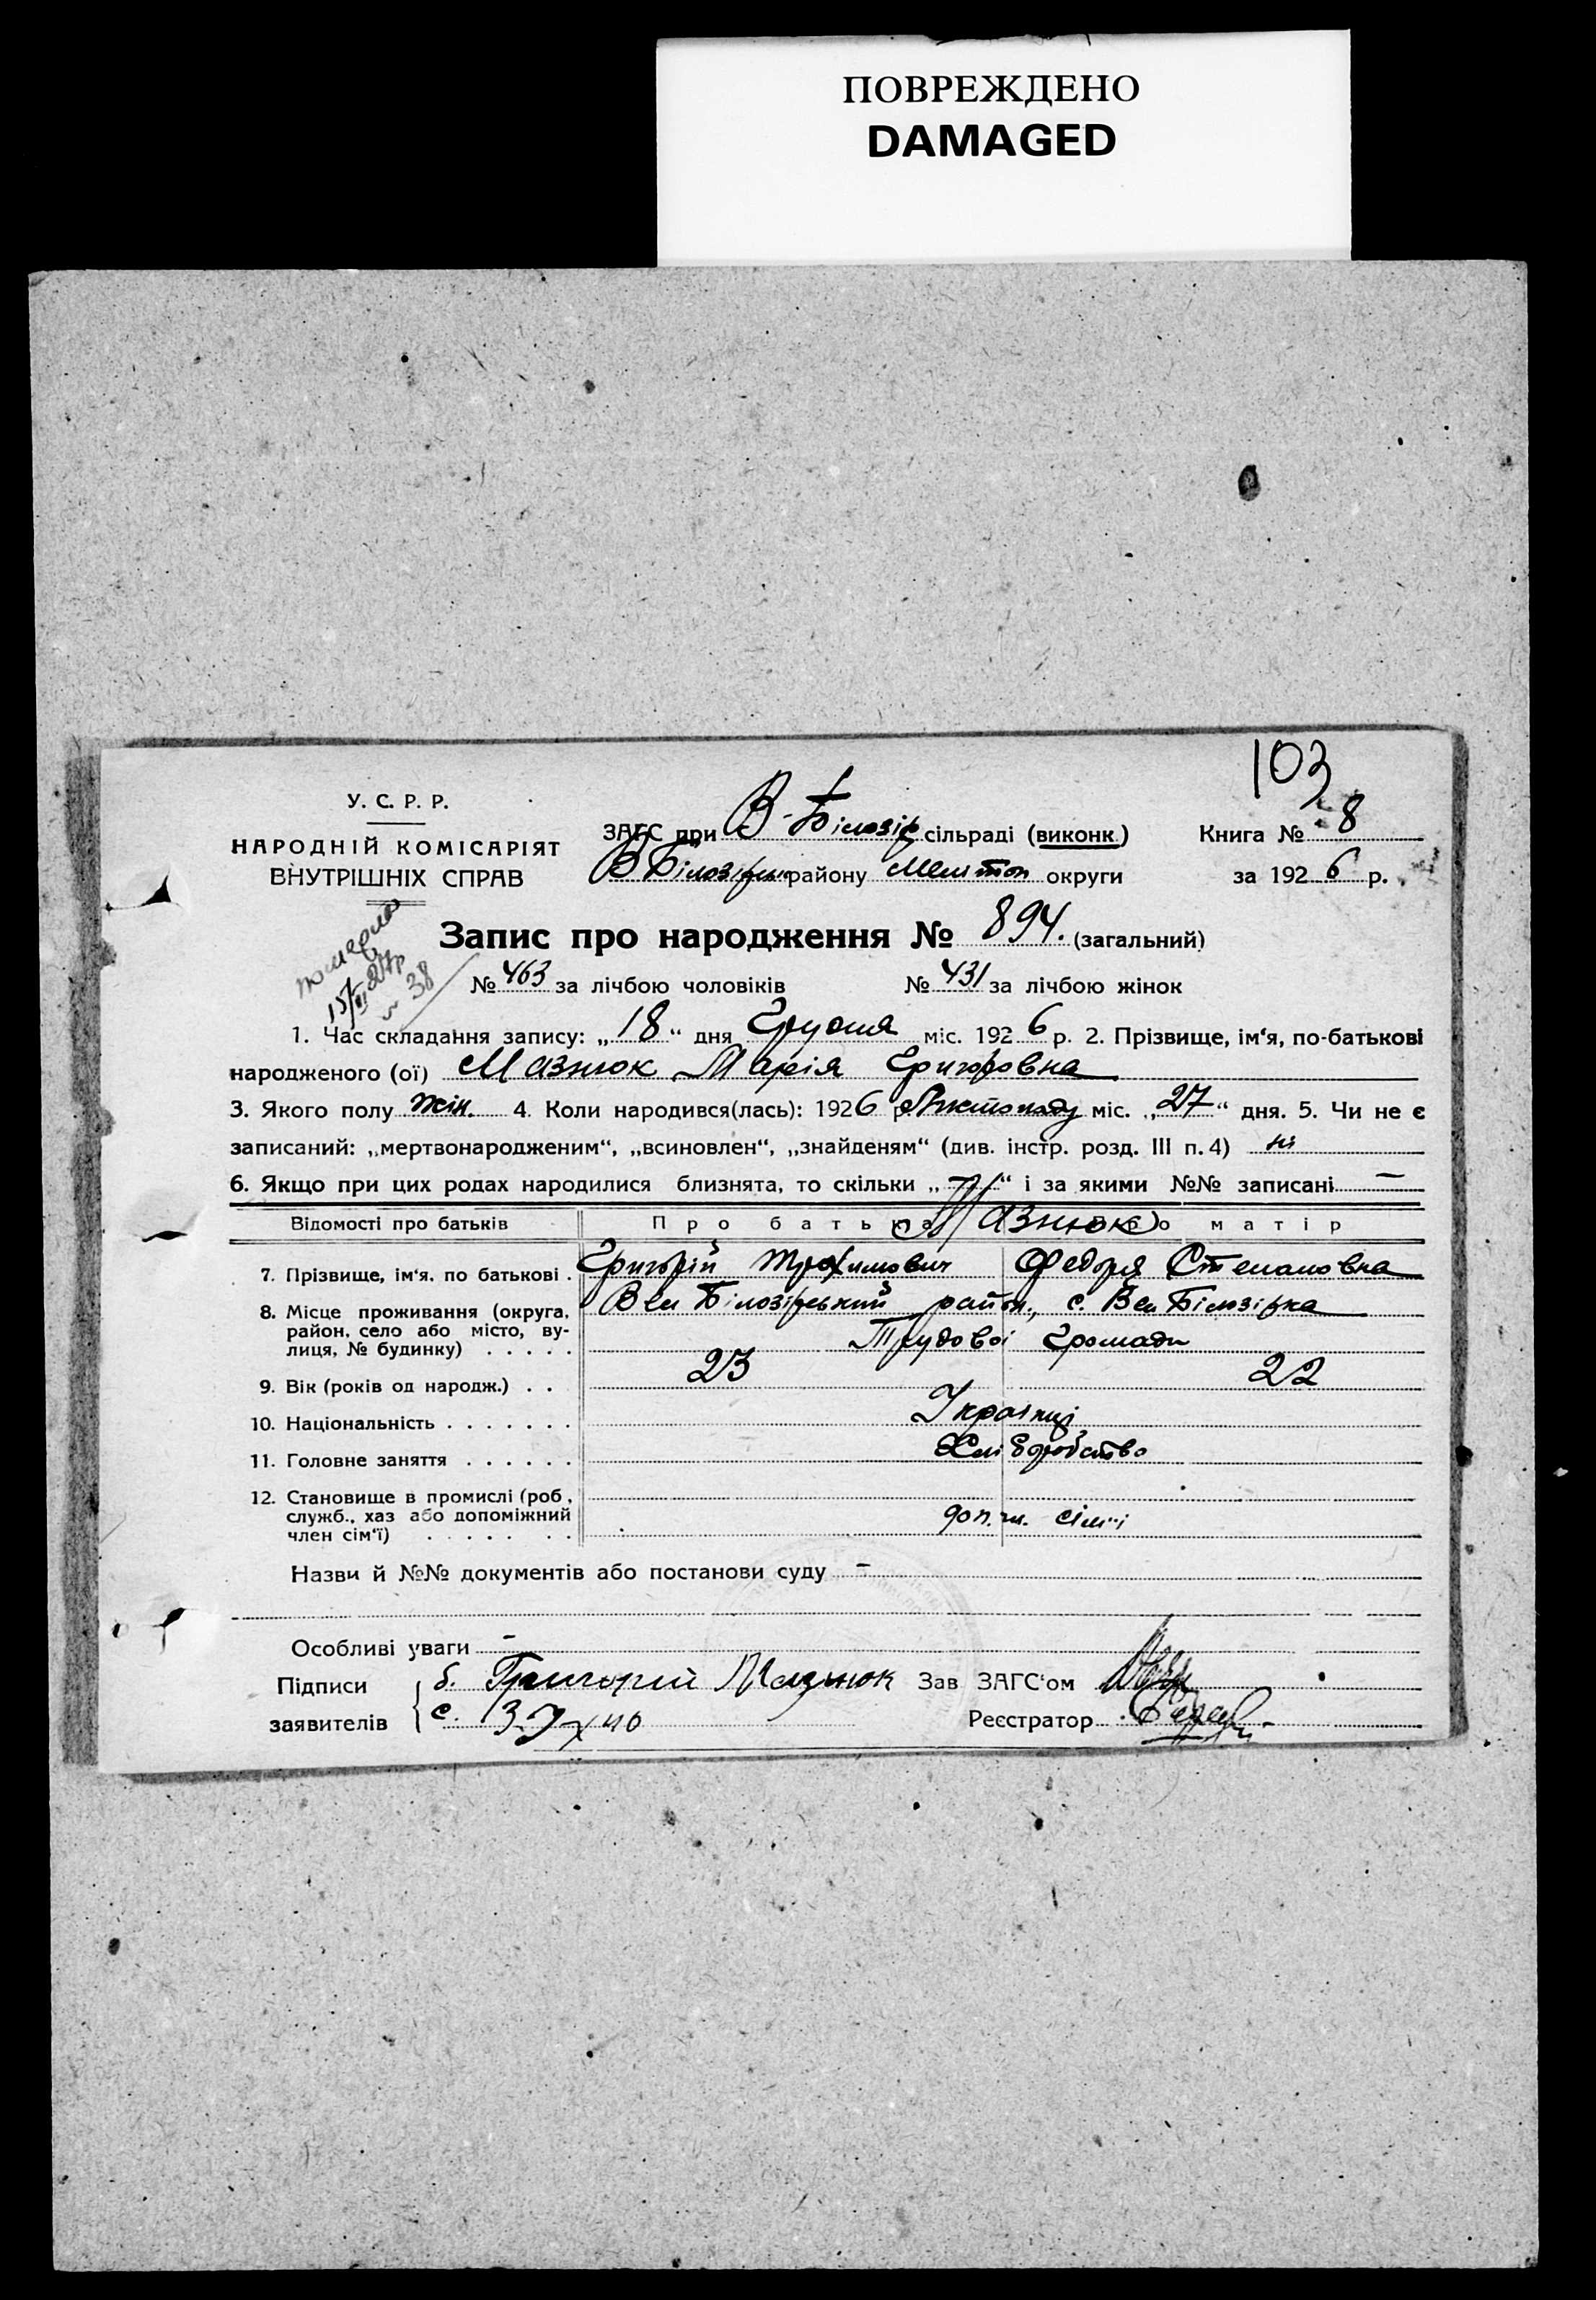 ПОВРЕЖДЕНО
DAMAGED
103
У. С. Р. Р.
НАРОДНІЙ КОМІСАРІЯТ
ВНУТРІШНІХ СПРАВ
ЗАГС при В-Білозір сільраді (виконк.)
В Білозірськ району Мелітоп округи
Книга № 8
за 1926 р.
померла
15/VI 27р
№ 38
Запис про народження № 894. (загальний)
№ 463 за лічбою чоловіків № 431 за лічбою жінок
1. Час складання запису: „18“ дня Грудня міс. 1926 р. 2. Прізвище, ім‘я, по-батькові
народженого (ої) Мазнюк Марія Григоровна
3. Якого полу жін. 4. Коли народився(лась): 1926 р. Листопаду міс. „27“ дня. 5. Чи не є
записаний: „мертвонародженим“, „всиновлен“, „знайденям“ (див. інстр. розд. III п. 4) ні
6. Якщо при цих родах народилися близнята, то скільки „—“ і за якими №№ записані —
Відомості про батьків Про батька Мазнюк Про матір
7. Прізвище, ім‘я, по батькові . Григорій Трохимович Федоря Степановна
8. Місце проживання (округа, Вел Білозірський район., с. Вел Білозірка
район, село або місто, ву-
лиця, № будинку) . . . . . Трудової Громади
9. Вік (років од народж.) . . 23 22
10. Національність . . . . . . . Українці
11. Головне заняття . . . . . . Хліборобство
12. Становище в промислі (роб.,
служб., хаз або допоміжний доп. чл. сім'ї
член сім‘ї) . . . . . . .
Назви й №№ документів або постанови суду —
Особливі уваги —
Підписи б. Григорій Мазнюк Зав ЗАГС‘ом
заявителів с. Реєстратор